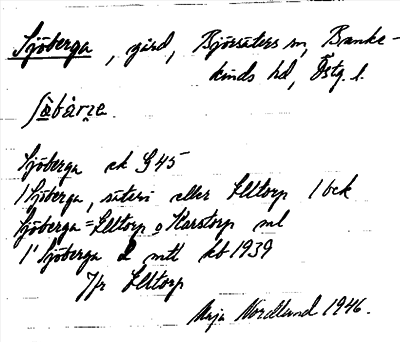 Sjöberga, gård, Björsäters sn, Banke-
kinds hd, Östg. l.
Sjöberga ek G45
1 Sjöberga, säteri eller Elltorp 1 bek
Sjöberga = Elltorp o Karstorp ml
1' Sjöberga 2 mtl kb 1939
Jfr Elltorp
Maja Nordlund 1946.